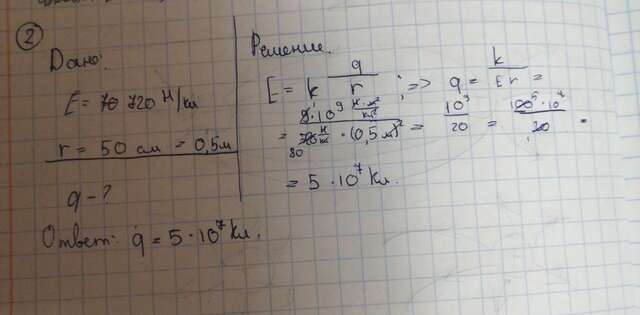 ②
Дано:
E = 720 Н/кл
r = 50 см = 0,5м
q - ?
Решение.
E = k q/r ; => q = k/Er =
= 9·10⁹ Н·м²/кл² / 720 Н/кл · (0,5 м)² = 10⁹/20 = 100·10⁷/20 =
80
= 5 · 10⁷ Кл.
Ответ: q = 5 · 10⁷ Кл.